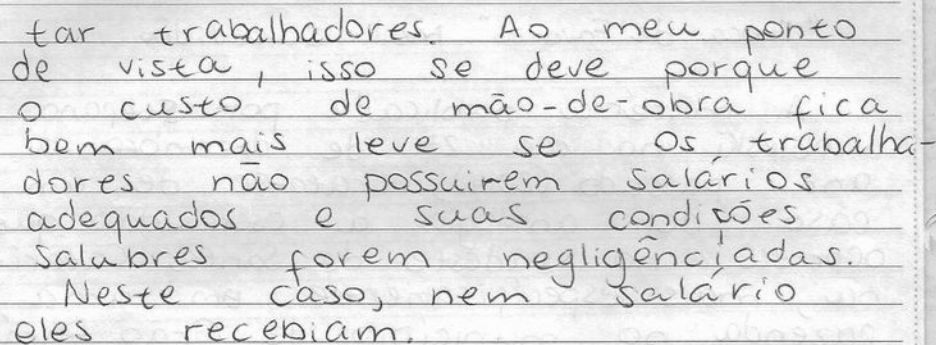 tar trabalhadores. Ao meu ponto
de vista, isso se deve porque
o custo de mão-de-obra fica
bem mais leve se os trabalha-
dores não possuirem salários
adequados e suas condições
salubres forem negligênciadas.
Neste caso, nem salário
eles recebiam.